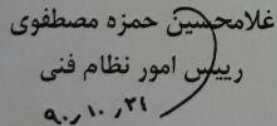 غلامحسین حمزه مصطفوی
رییس امور نظام فنی
۹۰٫۱۰٫۲۱